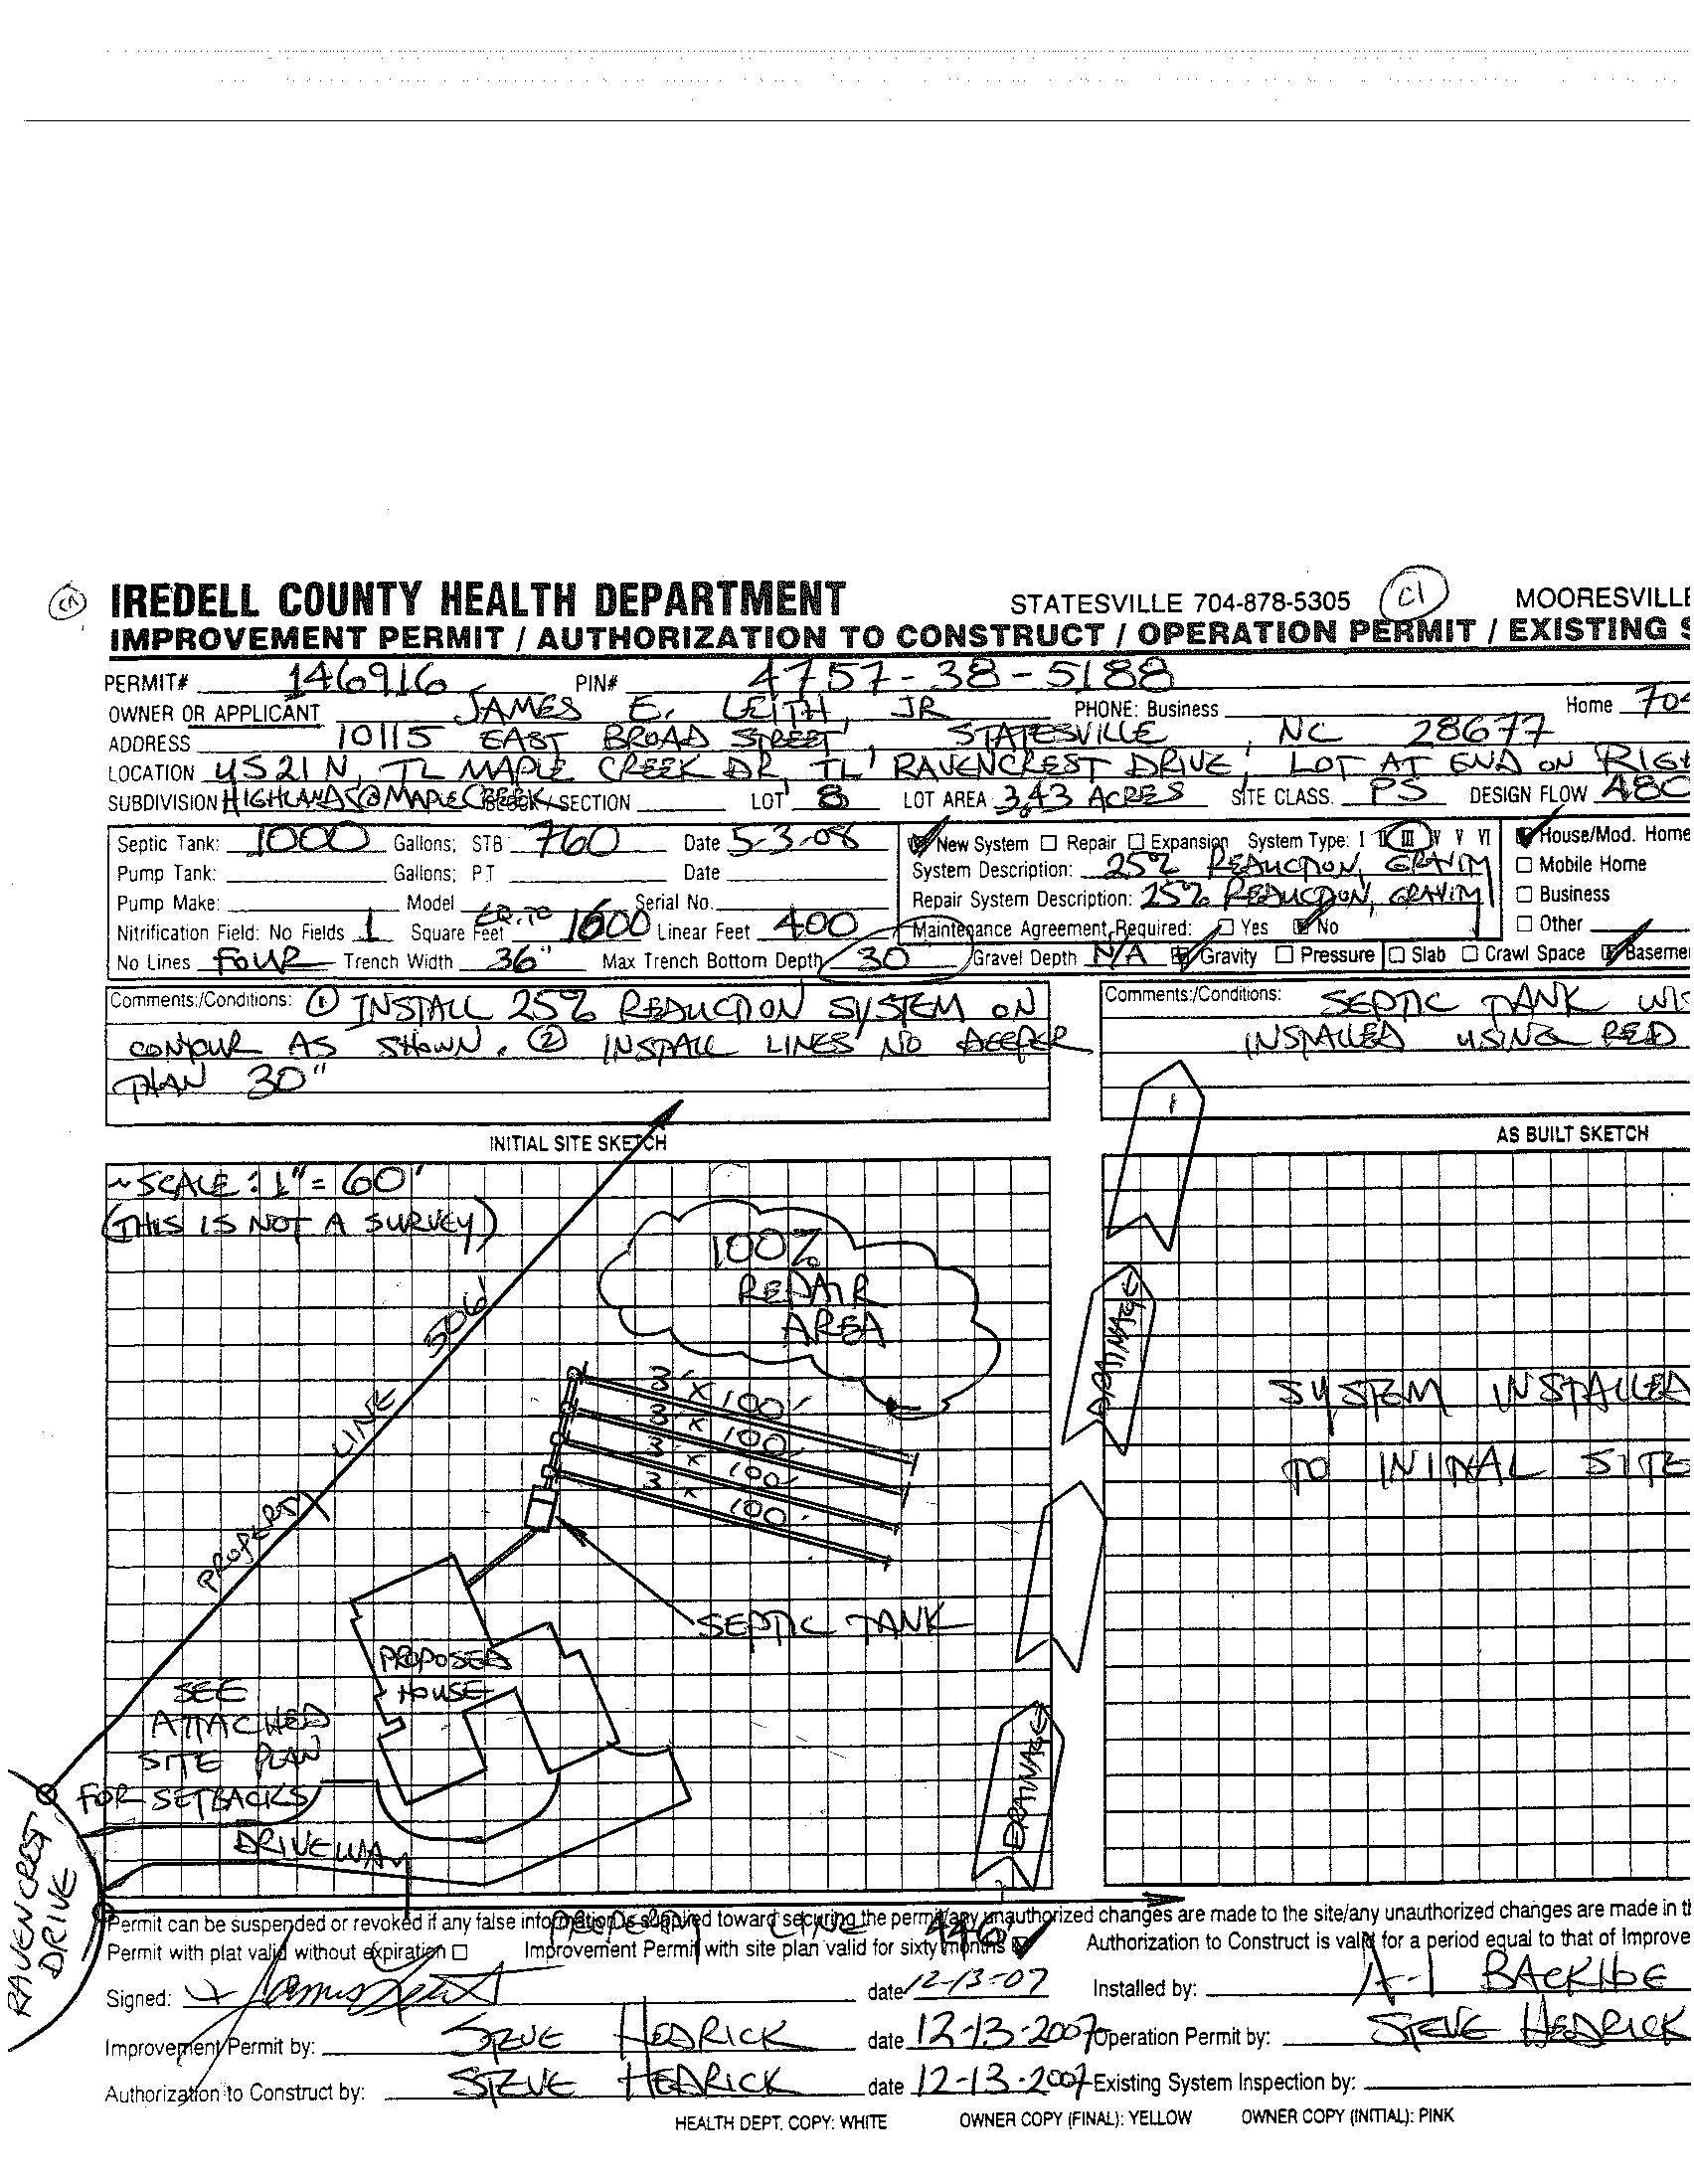 IREDELL COUNTY HEALTH DEPARTMENT STATESVILLE 704-878-5305 C1 MOORESVILLE
IMPROVEMENT PERMIT / AUTHORIZATION TO CONSTRUCT / OPERATION PERMIT / EXISTING S
PERMIT# 146916 PIN# 4757-38-5188
OWNER OR APPLICANT JAMES E. LEITH, JR PHONE: Business Home 704
ADDRESS 10115 EAST BROAD STREET, STATESVILLE, NC 28677
LOCATION US 21 N, TL MAPLE CREEK DR, TL RAVENCREST DRIVE, LOT AT END ON RIGH
SUBDIVISION HIGHLANDS@MAPLE CREEK BLOCK / SECTION LOT 8 LOT AREA 3.43 ACRES SITE CLASS. PS DESIGN FLOW 480
Septic Tank: 1000 Gallons; STB 760 Date 5-3-08
Pump Tank: Gallons; PT Date
Pump Make: Model Serial No.
Nitrification Field: No Fields 1 Square Feet EQ. TO 1600 Linear Feet 400
No Lines FOUR Trench Width 36" Max Trench Bottom Depth 30 Gravel Depth N/A Gravity Pressure Slab Crawl Space Baseme
New System Repair Expansion System Type: I II III IV V VI
System Description: 25% REDUCTION, GRAVITY
Repair System Description: 25% REDUCTION, GRAVITY
Maintenance Agreement Required: Yes No
House/Mod. Home
Mobile Home
Business
Other
Comments:/Conditions: ① INSTALL 25% REDUCTION SYSTEM ON
CONTOUR AS SHOWN. ② INSTALL LINES NO DEEPER
THAN 30"
Comments:/Conditions: SEPTIC TANK WIS
INSTALLED USING RED
INITIAL SITE SKETCH
AS BUILT SKETCH
~SCALE: 1" = 60'
(THIS IS NOT A SURVEY)
100%
REPAIR
AREA
PROPERTY LINE 506'
3' x 100'
3' x 100'
3' x 100'
3' x 100'
DRAINAGE
SYSTEM INSTALLED
TO INITIAL SITE
SEPTIC TANK
PROPOSED
HOUSE
SEE
ATTACHED
SITE PLAN
FOR SETBACKS
DRIVEWAY
DRAINAGE
RAVENCREST
DRIVE
PROPERTY LINE 446'
Permit can be suspended or revoked if any false information is supplied toward securing the permit/any unauthorized changes are made to the site/any unauthorized changes are made in th
Permit with plat valid without expiration Improvement Permit with site plan valid for sixty months Authorization to Construct is valid for a period equal to that of Improve
Signed: date 12-13-07 Installed by: A-1 BACKHOE
Improvement Permit by: STEVE HEDRICK date 12-13-2007 Operation Permit by: STEVE HEDRICK
Authorization to Construct by: STEVE HEDRICK date 12-13-2007 Existing System Inspection by:
HEALTH DEPT. COPY: WHITE OWNER COPY (FINAL): YELLOW OWNER COPY (INITIAL): PINK